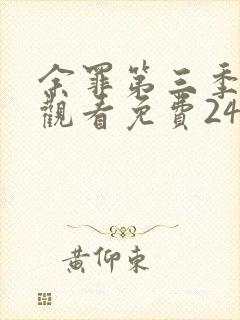 余罪第三季
觀看免費24
黃仰東